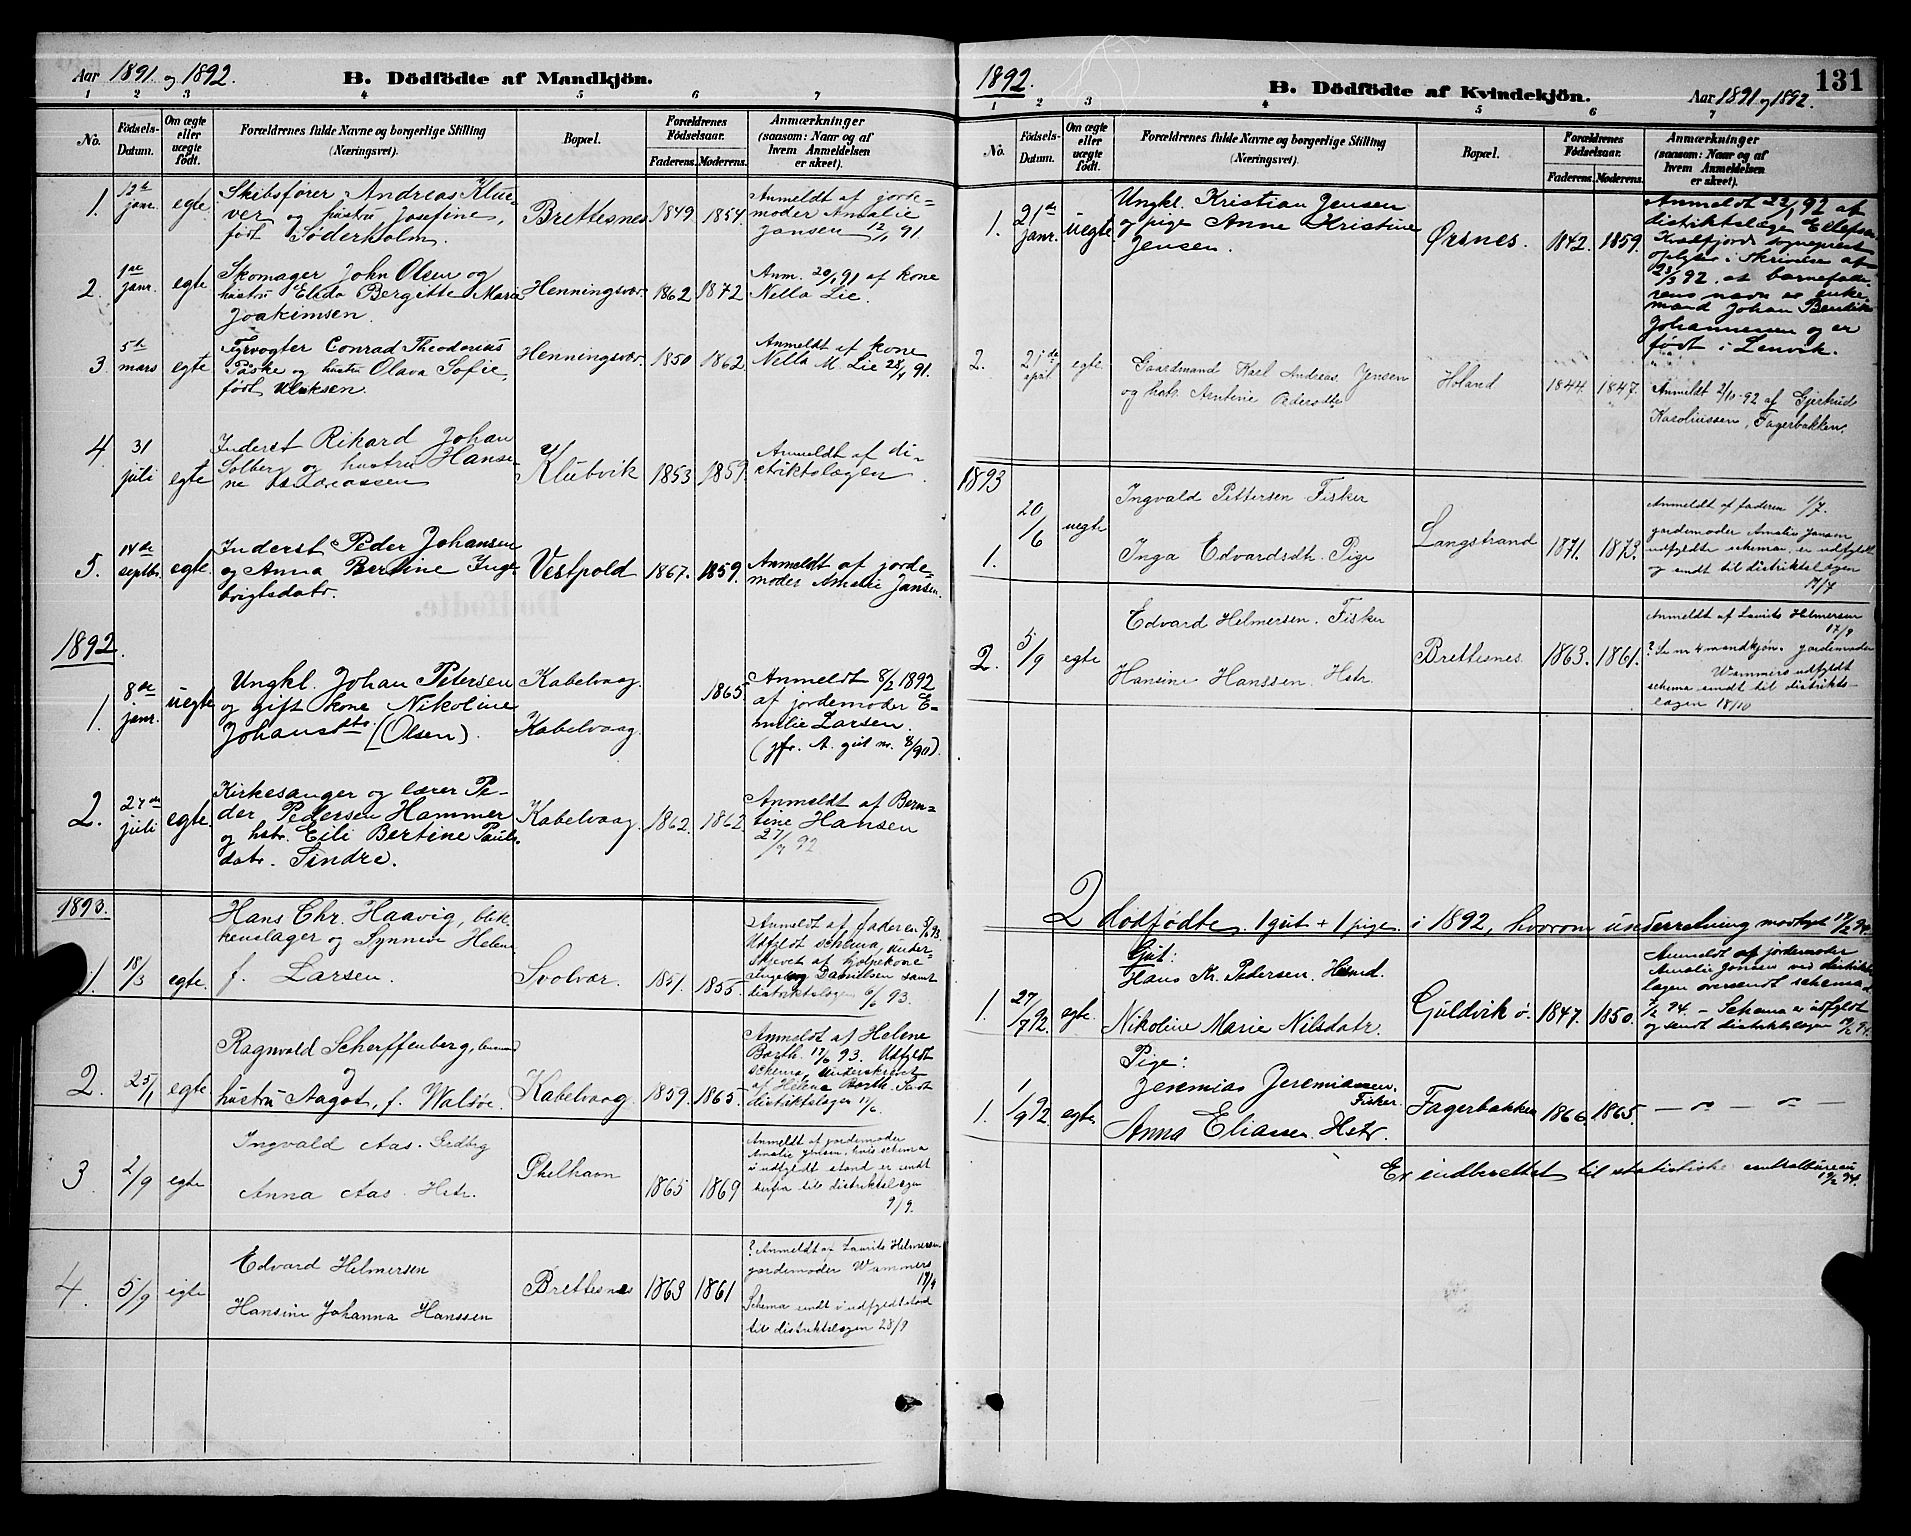 Aar 1891 og 1892. B. Dödfödte af Mandkjön.
1 2 3 4 5 6 7
No. Födsels-Datum. Om ægte eller uægte födt. Forældrenes fulde Navne og borgerlige Stilling (Næringsvei). Bopæl. Forældrenes Födselsaar. Faderens. Moderens. Anmærkninger (saasom: Naar og af hvem Anmeldelsen er skeet).
1. janr. egte Skibsfører Andreas Klüver og hustru Josefine, født Söderholm. Brettesnes 1849 1854 Anmeldt af jordemoder Amalie Jansen 12/1 91.
2. janr. egte Skomager John Olsen og hustru Elida Bergitte Marie Joakimsen. Henningsvær 1862 1872 Anm. 20/1 91 af kone Nella Lie.
3 5te mars egte Fyrvogter Conrad Theodorius Paske og hustru Olava Sofie, født Ulriksen. Henningsvær 1850 1862 Anmeldt af kone Nella M. Lie 91.
4. 31 juli egte Inderst Rikard Johan Solberg og hustru Hansine Andreassen Klubvik 1853 1859. Anmeldt af distriktslægen.
5. 14de septbr. egte. Inderst Peder Johansen og Anna Bertine Ingebrigtsdatr. Vestpold 1867. 1859. Anmeldt af jordemoder Amalie Jansen.
1892.
1. 8de janr. uegte Ungkl. Johan Petersen og gift kone Nikoline Johansdtr. (Olsen). Kabelvaag. Kabelvaag. 1865 Anmeldt 8/2 1892 af jordemoder Emilie Larsen. (jfr. A. gut nr. 8/90).
2. 27de juli egte. Kirkesanger og lærer Peder Pedersen Hammer og hstr. Eili Bertine Paulsdatr. Sindre. Kabelvaag. 1862. 1862. Anmeldt af Berntine Hansen 27/7 92
1893.
1. 18/3 egte. Hans Chr. Haavig, blikkenslager og Synneve Helene f. Larsen. Svolvær. 1851. 1855. Anmeldt af faderen 93. Udfyldt schema, underskrevet af hjælpekone Ingeborg Danielsen samt distriktslægen 6/6 93.
2. 25/1 egte Ragnvald Scherffenberg, og hustru Aagot, f. Walsöe. Kabelvaag. 1859. 1865. Anmeldt af Helene Barth. 17/6 93. Udfyldt schema, underskrevet af Helene Barth. distriktslægen 17/6.
3. 2/9 egte Ingvald Aas. Anna Aas. Hstr. 1865 1869 Anmeldt af jordemoder Amalie Jensen, hvis schema i udfyldt stand er sendt herfra til distriktslægen 9/9.
4. 5/9 egte Edvard Helmersen Hansine Johanna Hanssen Brettesnes 1863 1861 ? Anmeldt af Laurits Helmersen. jordemoder Wammers 17/9 Schema sendt i udfyldt stand til distriktslægen 28/9
1892. B. Dödfödte af Kvindekjön. Aar 1891 og 1892. 131
1 2 3 4 5 6 7
No. Födsels-Datum. Om ægte eller uægte födt. Forældrenes fulde Navne og borgerlige Stilling (Næringsvei). Bopæl. Forældrenes Födselsaar. Faderens. Moderens. Anmærkninger (saasom: Naar og af hvem Anmeldelsen er skeet).
1. 21de janr. uegte Ungkl. Kristian Jensen og pige Anne Kristine Jensen. Ørsnes. 1842. 1859. Anmeldt 22/1 92 af distriktslæge Kvædfjords sogneprest oplyser i skrivelse af 23/3 92, at barnefaderens navn er enkemand Johan Bendik Johannessen og er født i Lenvik.
2. egte. Gaardmand Karl Andreas Jensen og hstr. Arntine Pedersdtr. Holand 1844 1847. Anmeldt 2/10-92 af Gjertrud Karoliussen, Fagerbakken.
1893
1. 20/6 uegte Ingvald Pettersen Fisker Inga Edvardsdtr. Pige Langstrand 1871. 1873. Anmeldt af faderen 1/7. jordemoder Amalie Jansen udfyldte schema, er udfyldt og sendt til distriktslægen 17/7
2. 5/9 egte Edvard Helmersen. Fisker Hansine Hanssen. Hstr. Brettesnes. 1863. 1861. Anmeldt af Laurits Helmersen 17/9 ? Se nr 4 mandkjøn. jordemoder Wammers udfyldt schema sendt til distriktslægen 18/10
2 dødfødte. 1 gut + 1 pige. i 1892, hvorom underretning modtaget 17/2 94.
1. 27/7 92. egte. Gut: Hans Kr. Pedersen. Hsmd. Nikoline Marie Nilsdatr. Guldvik ø. 1847. 1850. Anmeldt af jordemoder Amalie Jansen ved distriktslægen oversendt schema 7/2 94. – Schema er udfyldt og sendt distriktslægen 94.
1. 1/9 92. egte Pige: Jeremias Jeremiassen. Fisker. Anna Eliassen. Hstr. Fagerbakken 1866 1865. – " – " –
Er indberettet til statistiske centralbureau 94.